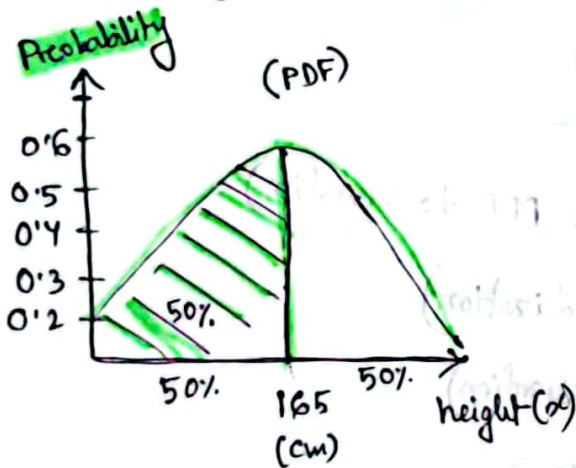 Probability
(PDF)
0.6
0.5
0.4
0.3
0.2
50%
50%
165
50%
height (x)
(cm)